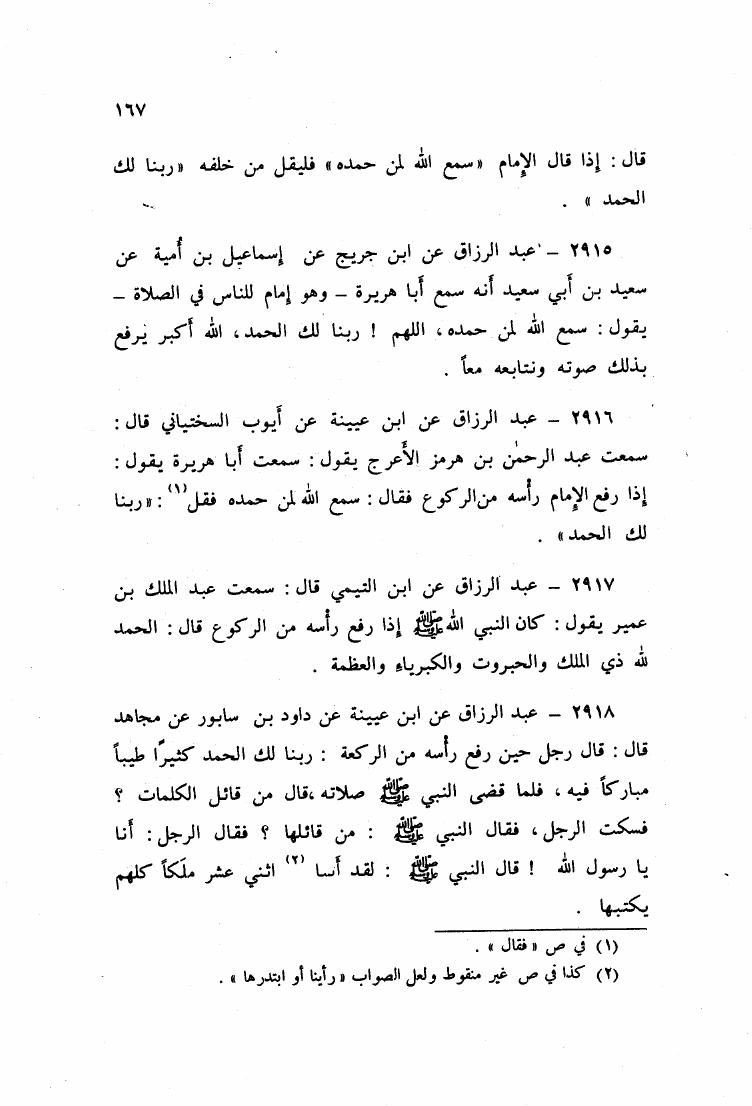 ١٦٧
قال : إذا قال الإمام «سمع الله لمن حمده» فليقل من خلفه «ربنا لك
الحمد » .
٢٩١٥ – عبد الرزاق عن ابن جريج عن إسماعيل بن أمية عن
سعيد بن أبي سعيد أنه سمع أبا هريرة – وهو إمام للناس في الصلاة –
يقول : سمع الله لمن حمده، اللهم ! ربنا لك الحمد، الله أكبر يرفع
بذلك صوته ونتابعه معاً .
٢٩١٦ – عبد الرزاق عن ابن عيينة عن أيوب السختياني قال :
سمعت عبد الرحمٰن بن هرمز الأعرج يقول : سمعت أبا هريرة يقول :
إذا رفع الإمام رأسه من الركوع فقال : سمع الله لمن حمده فقل(١) : «ربنا
لك الحمد» .
٢٩١٧ – عبد الرزاق عن ابن التيمي قال : سمعت عبد الملك بن
عمير يقول : كان النبي الله ﷺ إذا رفع رأسه من الركوع قال : الحمد
لله ذي الملك والحبروت والكبرياء والعظمة .
٢٩١٨ – عبد الرزاق عن ابن عيينة عن داود بن سابور عن مجاهد
قال : قال رجل حين رفع رأسه من الركعة : ربنا لك الحمد كثيرًا طيباً
مباركاً فيه ، فلما قضى النبي ﷺ صلاته ،قال من قائل الكلمات ؟
فسكت الرجل ، فقال النبي ﷺ : من قائلها ؟ فقال الرجل : أنا
يا رسول الله ! قال النبي ﷺ : لقد أسا (٢) اثني عشر ملَكاً كلهم
يكتبها .
(١) في ص « فقال » .
(٢) كذا في ص غير منقوط ولعل الصواب «رأينا أو ابتدرها » .